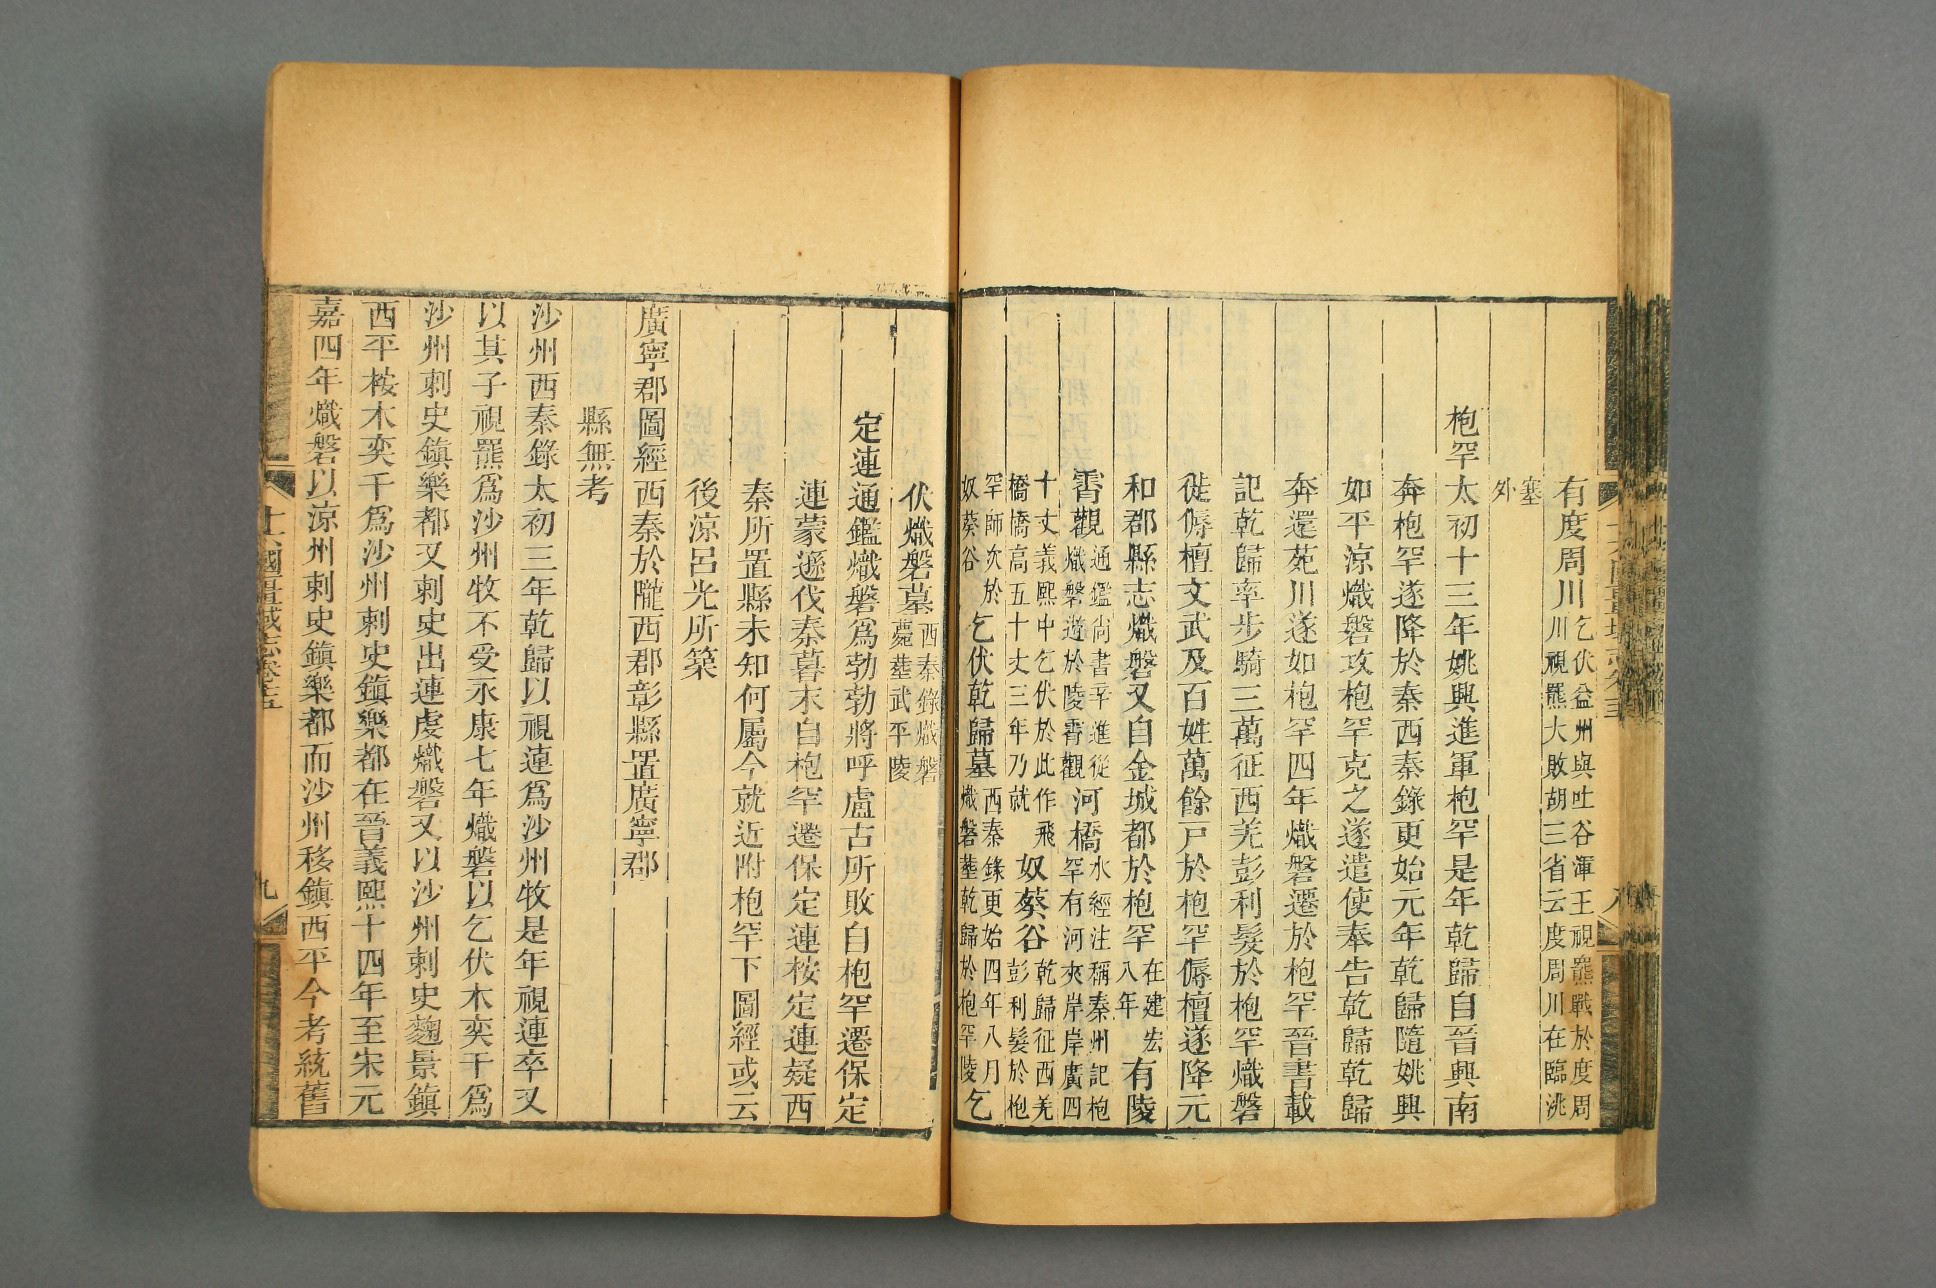 有度周川乞伏益州與吐谷渾王視羆戰於度周川視羆大敗胡三省云度周川在臨洮
塞外
枹罕太初十三年姚興進軍枹罕是年乾歸自晉興南
奔枹罕遂降於秦西秦錄更始元年乾歸隨姚興
如平涼熾磐攻枹罕克之遂遣使奉告乾歸乾歸
奔還苑川遂如枹罕四年熾磐遷於枹罕晉書載
記乾歸率步騎三萬征西羌彭利髮於枹罕熾磐
徙傉檀文武及百姓萬餘戸於枹罕傉檀遂降元
和郡縣志熾磐又自金城都於枹罕在建宏八年有陵
霄觀通鑑尚書辛進從熾磐遊於陵霄觀河橋水經注稱秦州記枹罕有河夾岸岸廣四
十丈義熙中乞伏於此作飛橋橋高五十丈三年乃就奴葵谷乾歸征西羌彭利髮於枹
罕師次於奴葵谷乞伏乾歸墓西秦錄更始四年八月熾磐塟乾歸於枹罕陵乞
伏熾磐墓西秦錄熾磐薨塟武平陵
定連通鑑熾磐爲勃勃將呼盧古所敗自枹罕遷保定
連蒙遜伐秦暮末自枹罕遷保定連桉定連疑西
秦所置縣未知何屬今就近附枹罕下圖經或云
後涼呂光所築
廣寧郡圖經西秦於隴西郡彰縣置廣寧郡
縣無考
沙州西秦錄太初三年乾歸以視連爲沙州牧是年視連卒又
以其子視羆爲沙州牧不受永康七年熾磐以乞伏木奕干爲
沙州刺史鎮樂都又刺史出連虔熾磐又以沙州刺史麴景鎮
西平桉木奕干爲沙州刺史鎮樂都在晉義熙十四年至宋元
嘉四年熾磐以涼州刺史鎮樂都而沙州移鎮西平今考統舊
十六國疆域志卷十五
九